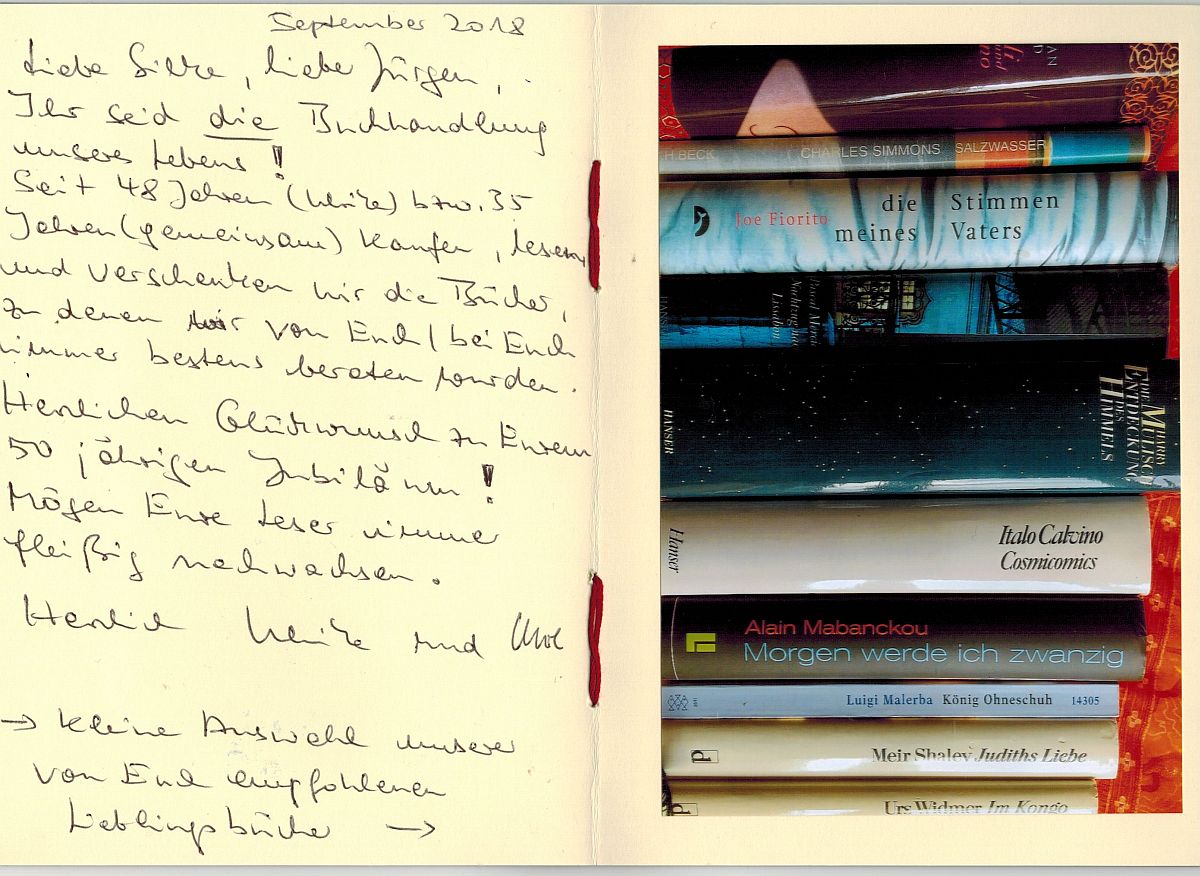 September 2018
Liebe Silke, liebe Jürgen,
Ihr seid die Buchhandlung
unseres Lebens!
Seit 48 Jahren (Ulrike) bzw. 35
Jahren (gemeinsam) kaufen, lesen
und verschenken wir die Bücher,
zu denen wir von Euch / bei Euch
immer bestens beraten wurden.
Herzlichen Glückwunsch zu Eurem
50 jährigen Jubiläum!
Mögen Eure Leser immer
fleißig nachwachsen.
Herzlich Ulrike und Uwe
→ kleine Auswahl unserer
von Euch empfohlenen
Lieblingsbücher →
H. BECK CHARLES SIMMONS SALZWASSER
Joe Fiorito die Stimmen
meines Vaters
Nachtzug nach
Lissabon
HANSER
HARRY MULISCH
DIE ENTDECKUNG
DES HIMMELS
Hanser Italo Calvino
Cosmicomics
Alain Mabanckou
Morgen werde ich zwanzig
Luigi Malerba König Ohneschuh 14305
Meir Shalev Judiths Liebe
Urs Widmer Im Kongo